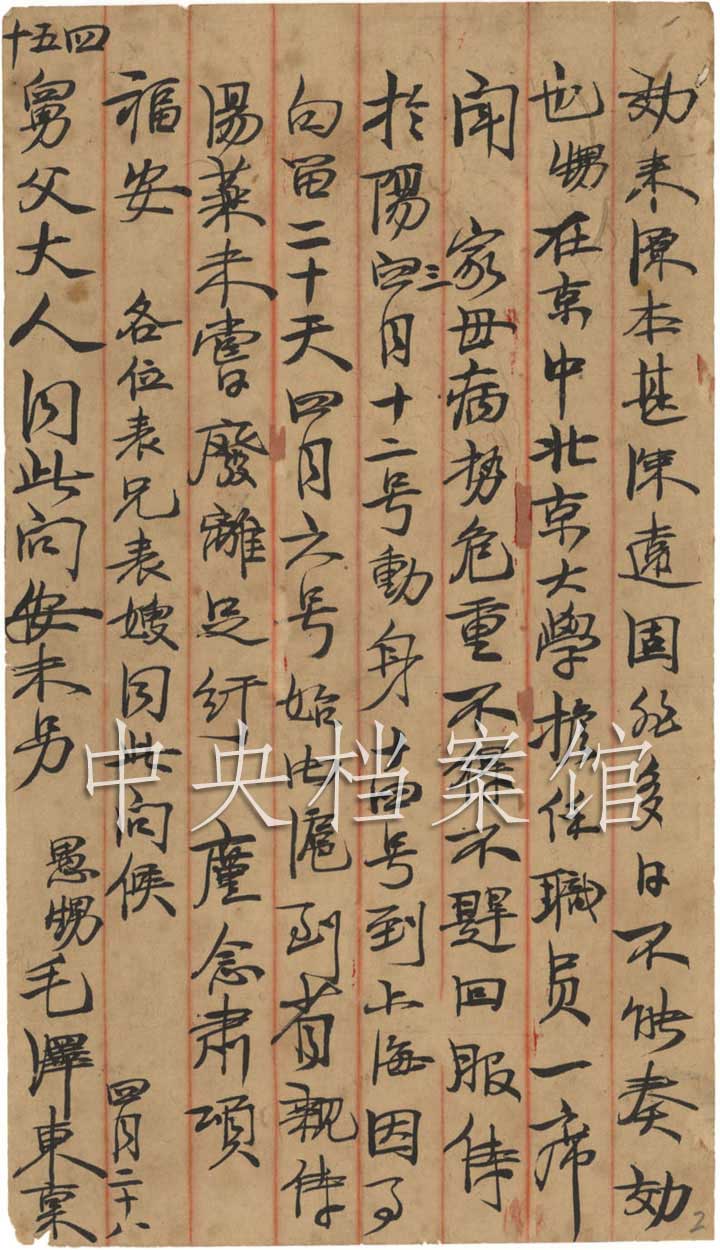 効来源本甚深遠固非多日不能奏効
也甥在京中北京大學擔任職员一席
闻 家母病势危重不得不趕回服侍
於陽三月十二号動身十四号到上海因事
勾留二十天四月六号始由滬到省親侍
湯藥未嘗廢離足紓廑念肃頌
福安 各位表兄表嫂同此问候
四五十
舅父大人同此问安未另
愚甥毛澤東禀
四月二十八
中央档案馆
2